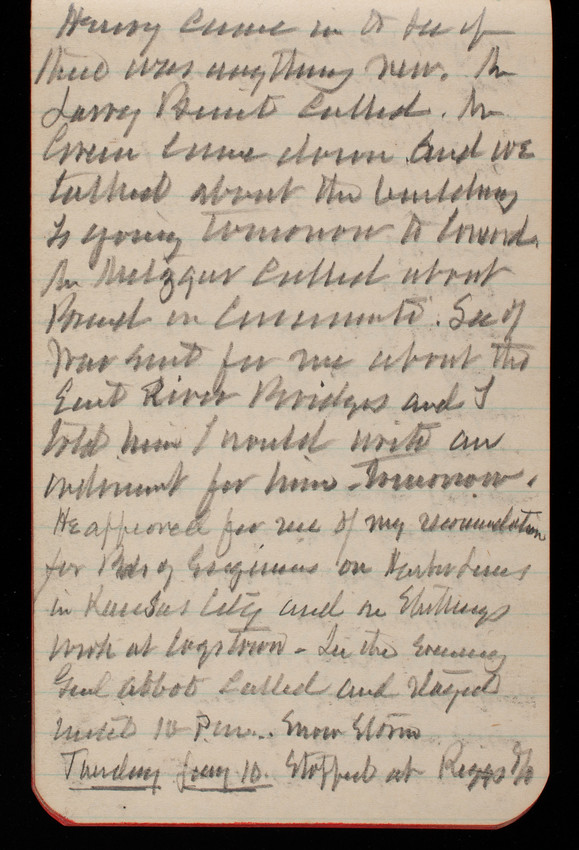 Henry came in to see if
there was anything new. Mr
Larry called. Mr
Green came down and we
talked about the building
is going tomorrow to
Mr Metzgar called about
Board in Cincinnati. Sec of
War sent for me about the
East River Bridges and I
told him I would write an
indorsement for him tomorrow.
He approved for use of my recommendation
for Brd of Engineers on Harbor Lines
in Kansas City and on
work at Logstown - In the Evening
Genl Abbot called and stayed
until 10 P.m.. Snow Storm
Tuesday Jany 10. Stopped at Riggs